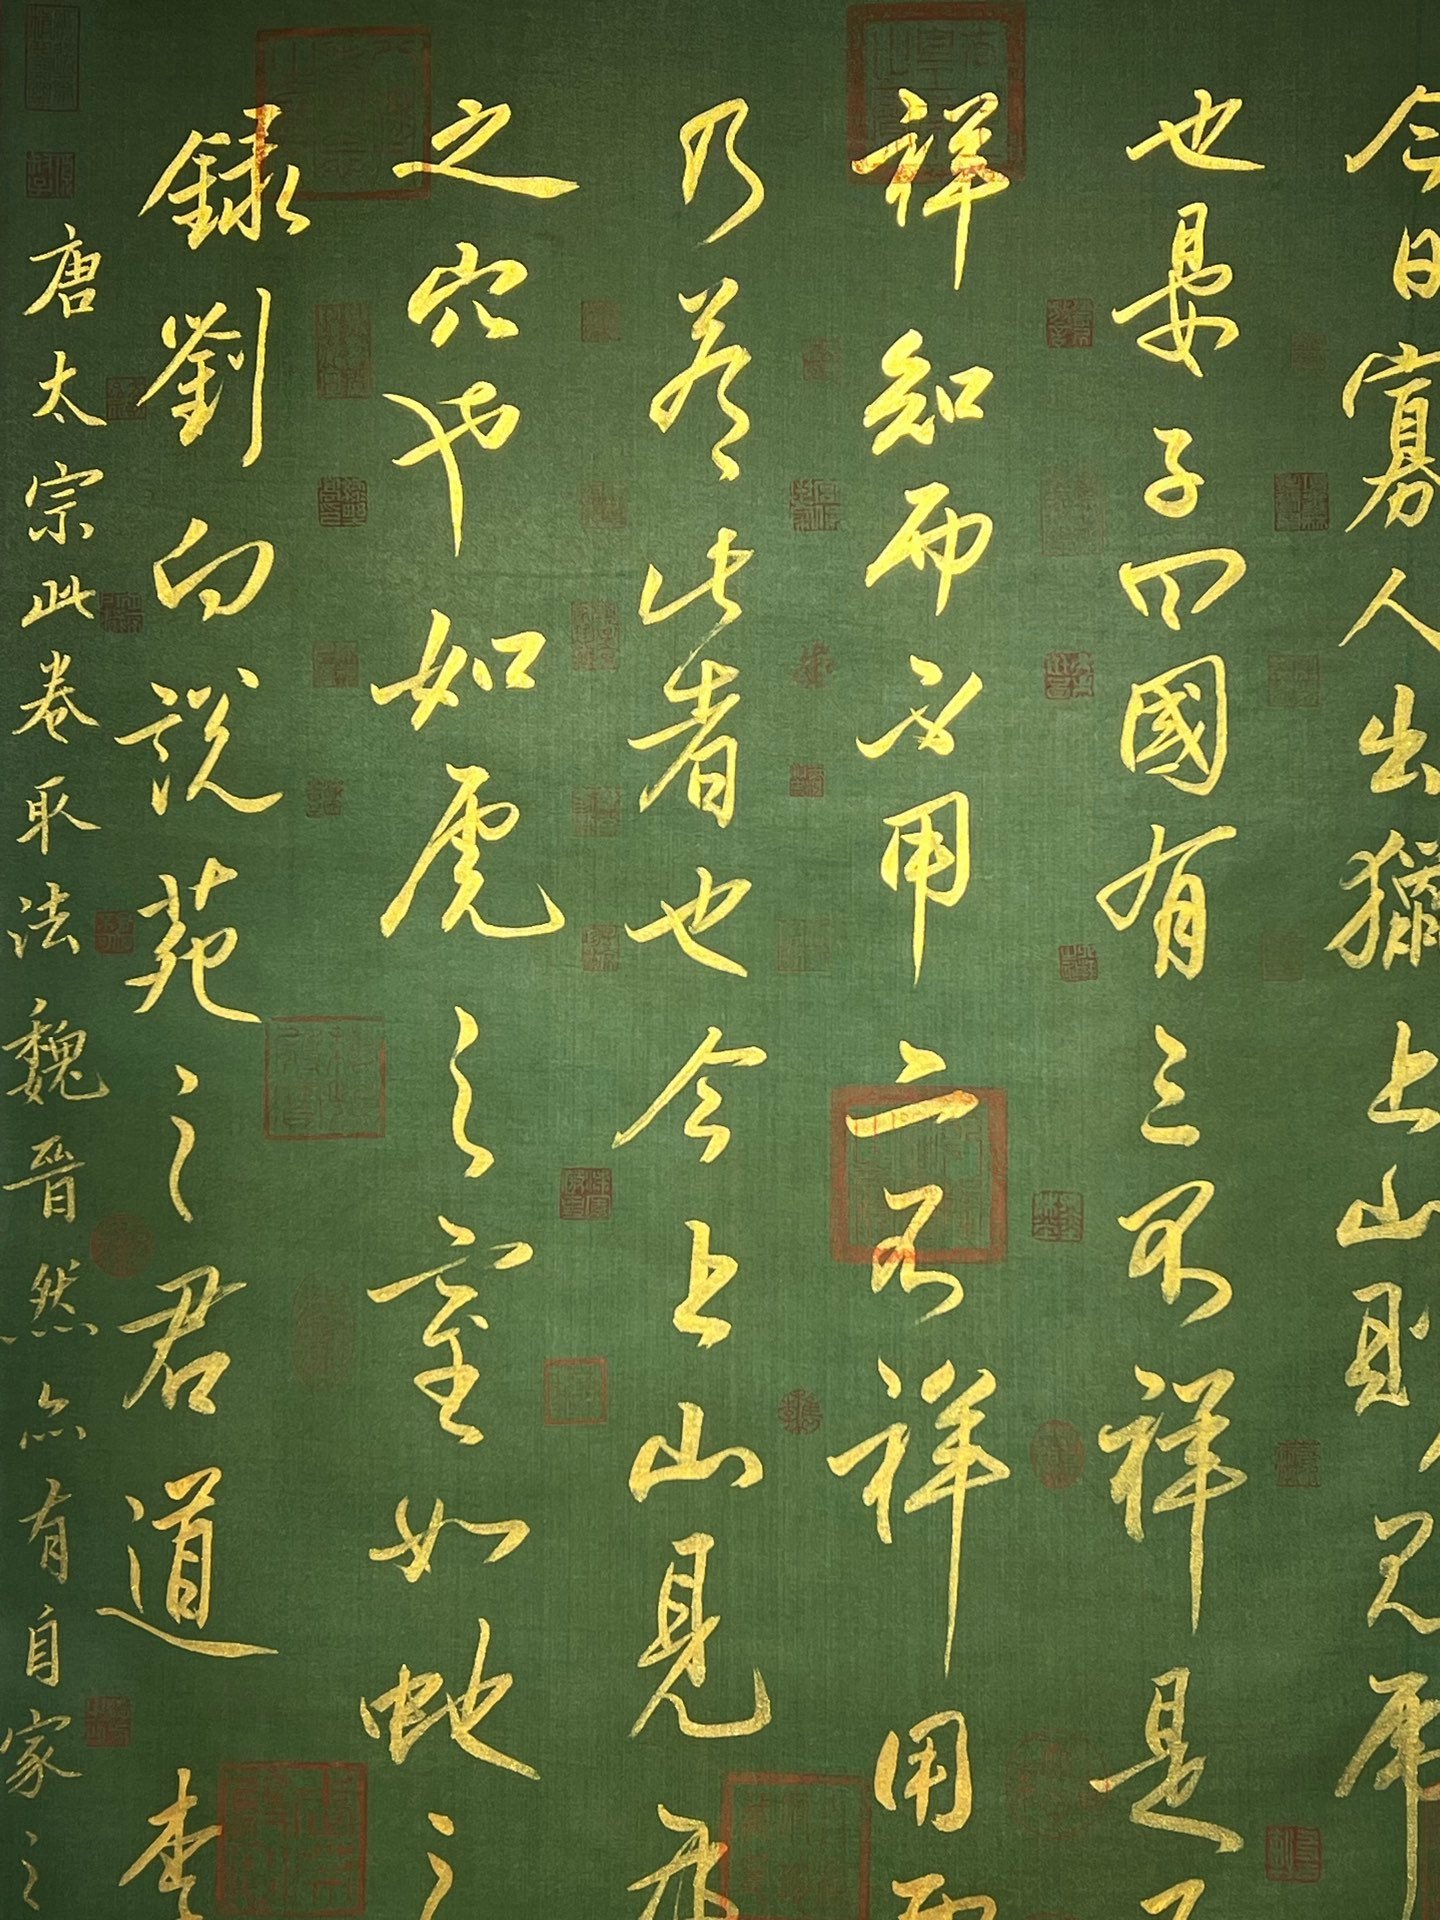 今日寡人出獵上山則見虎
也晏子曰國有三不祥是不
祥知而不用二不祥用而
乃若此者也今上山見虎
之穴也如虎之室如蛇之
錄劉向說苑之君道 李
唐太宗此卷取法魏晉然亦有自家之